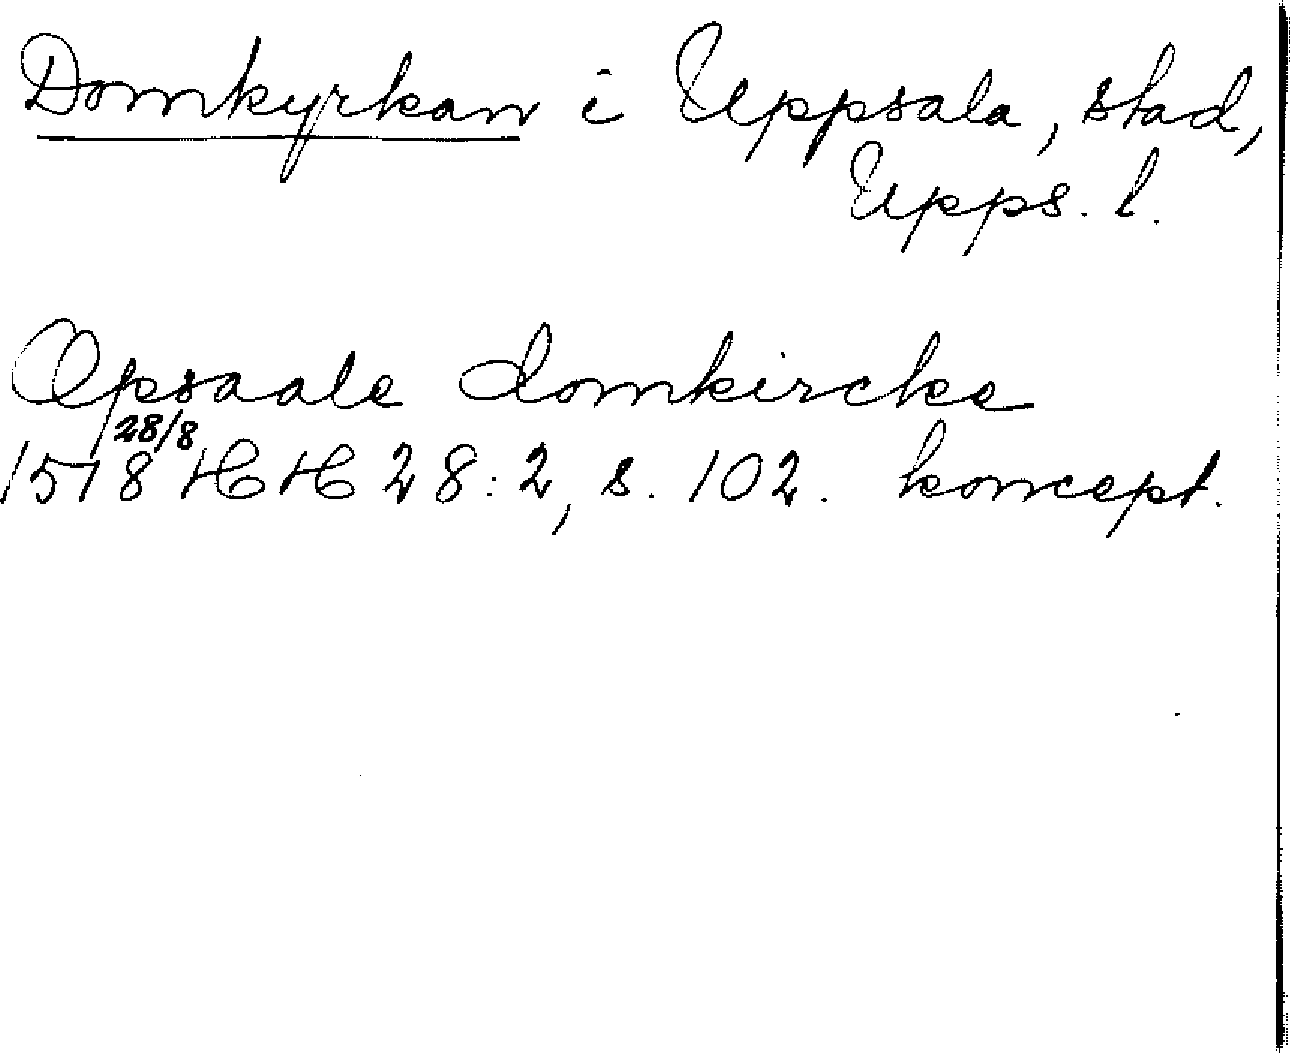 Domkyrkan i Uppsala, stad,
Upps. l.
Opsaale domkircke
1518 28/8 HH 28:2, s. 102. koncept.